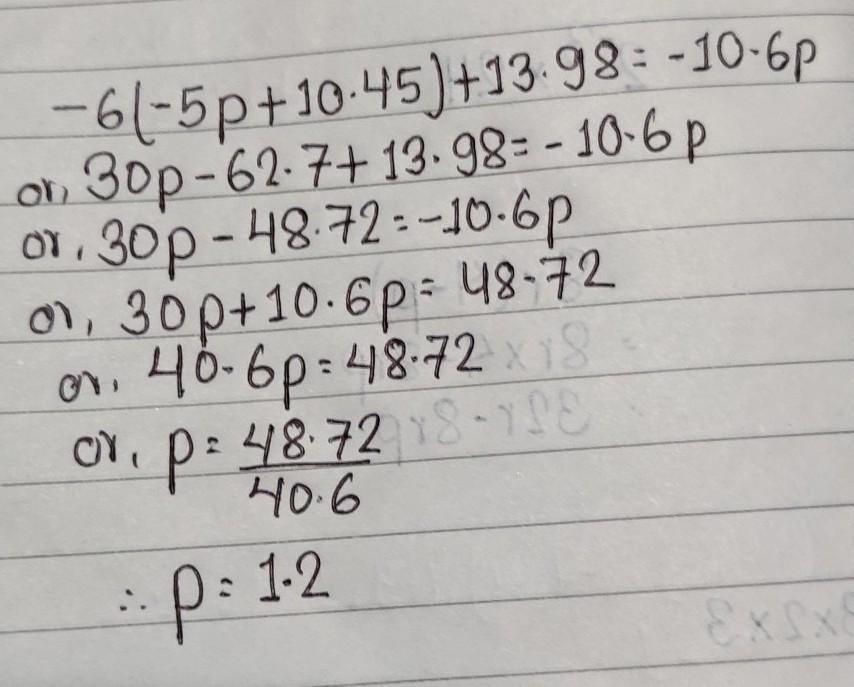 -6(-5p+10.45)+13.98=-10.6p
or, 30p-62.7+13.98=-10.6p
or, 30p-48.72=-10.6p
or, 30p+10.6p=48.72
or, 40.6p=48.72
or, p=48.72/40.6
∴ p=1.2